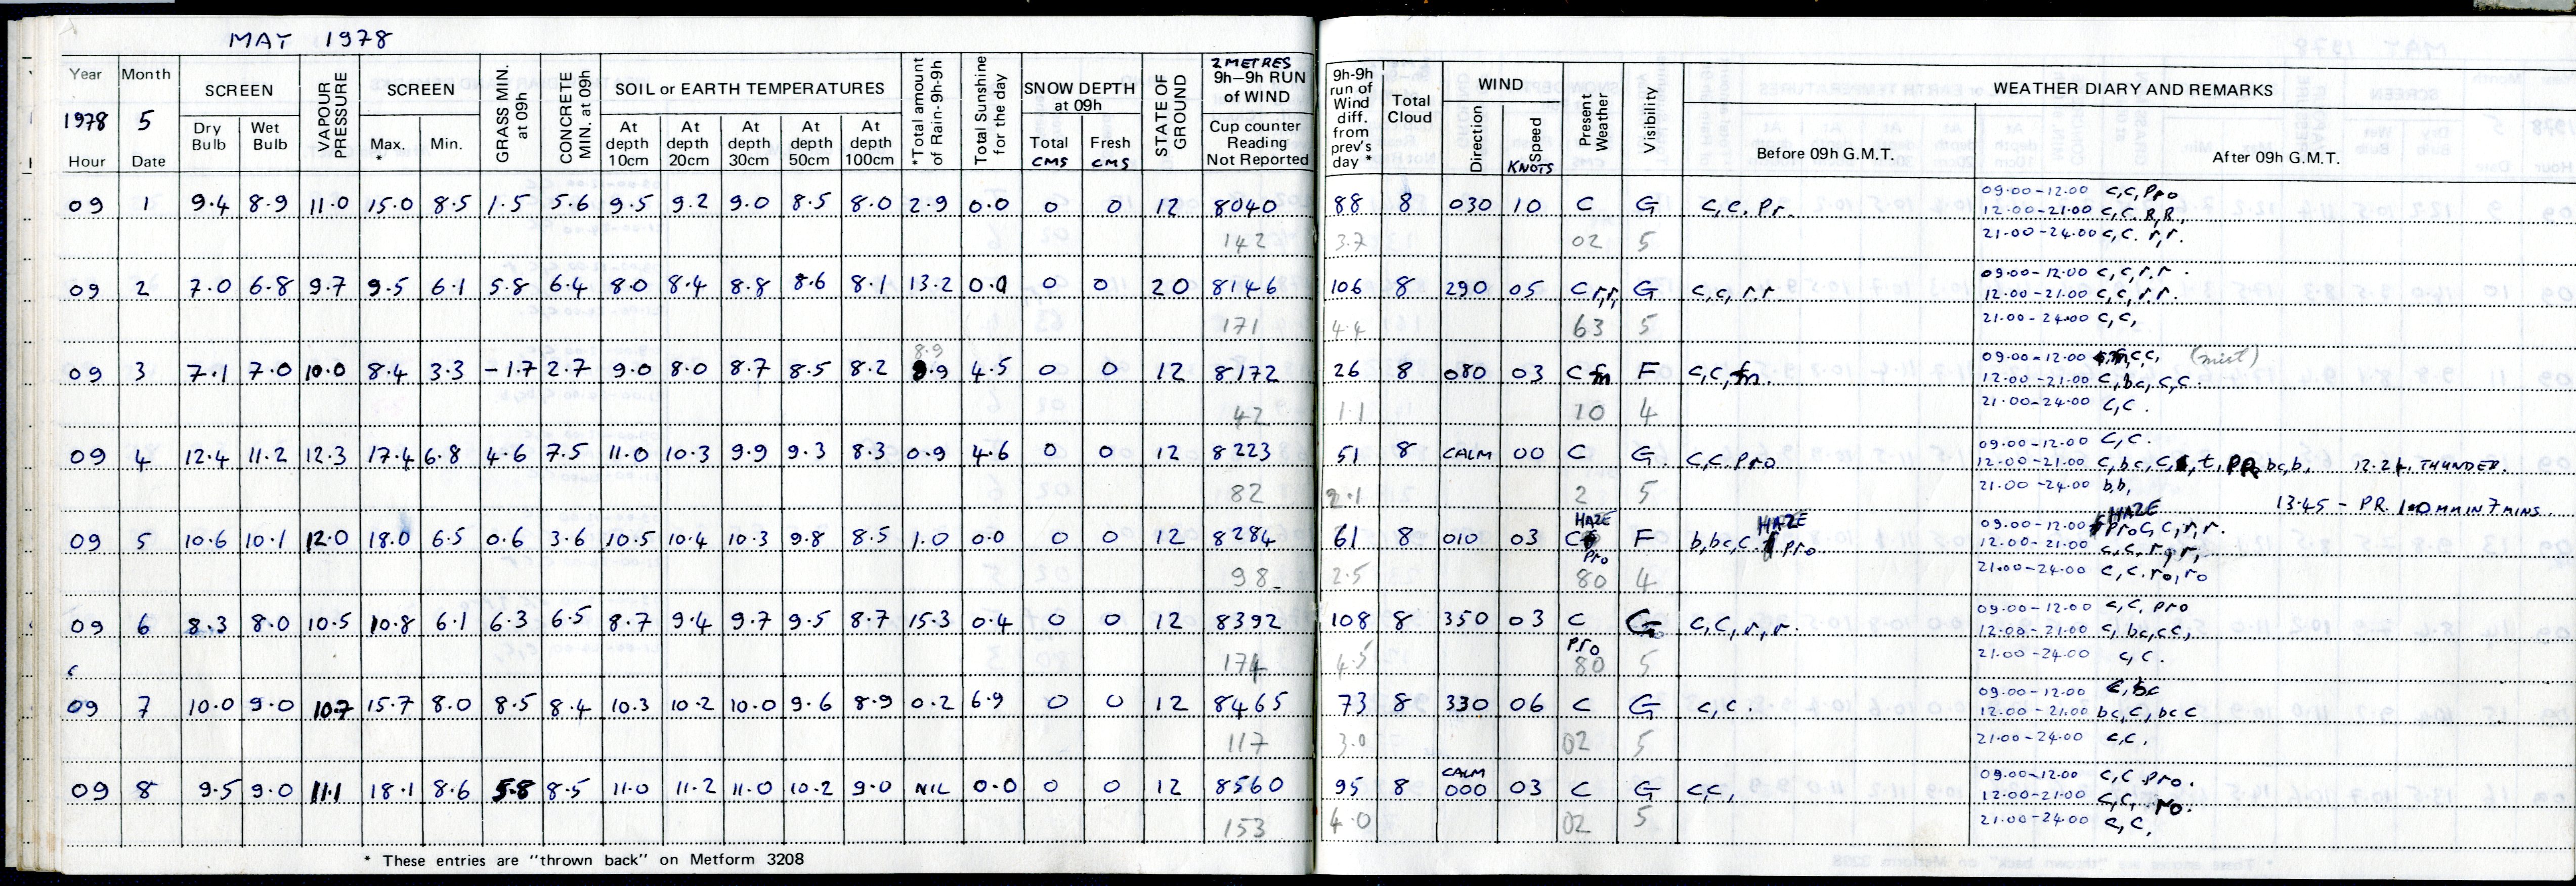 MAY 1978
Year Month SCREEN VAPOUR PRESSURE SCREEN GRASS MIN. at 09h CONCRETE MIN. at 09h SOIL or EARTH TEMPERATURES *Total amount of Rain-9h-9h Total Sunshine for the day SNOW DEPTH at 09h STATE OF GROUND 2 METRES 9h–9h RUN of WIND 9h-9h run of Wind diff. from prev's day * Total Cloud WIND Present Weather Visibility WEATHER DIARY AND REMARKS
1978 5 Dry Bulb Wet Bulb Max. * Min. At depth 10cm At depth 20cm At depth 30cm At depth 50cm At depth 100cm Total CMS Fresh CMS Cup counter Reading Not Reported Direction Speed KNOTS Before 09h G.M.T. After 09h G.M.T.
Hour Date
09 1 9.4 8.9 11.0 15.0 8.5 1.5 5.6 9.5 9.2 9.0 8.5 8.0 2.9 0.0 0 0 12 8040 88 8 030 10 C G C,C. Pr. 09.00-12.00 C,C, Pro
12.00-21.00 C,C. R,R,
142 3.7 02 5 21.00-24.00 C,C. r,r.
09 2 7.0 6.8 9.7 9.5 6.1 5.8 6.4 8.0 8.4 8.8 8.6 8.1 13.2 0.0 0 0 20 8146 106 8 290 05 C r,r, G C,C, r.r. 09.00-12.00 C,C,r.r.
12.00-21.00 C,C,r.r.
171 4.4 63 5 21.00-24.00 C,C,
8.9
09 3 7.1 7.0 10.0 8.4 3.3 -1.7 2.7 9.0 8.0 8.7 8.5 8.2 8.9 4.5 0 0 12 8172 26 8 080 03 C fm F C,C,fm. 09.00-12.00 CC, (mist)
12.00-21.00 C,bc,C,C.
42 1.1 10 4 21.00-24.00 C,C.
09 4 12.4 11.2 12.3 17.4 6.8 4.6 7.5 11.0 10.3 9.9 9.3 8.3 0.9 4.6 0 0 12 8223 51 8 CALM 00 C G. C,C. Pro 09.00-12.00 C,C.
12.00-21.00 C,bc,C, t, PR, bc,b. 12.24. THUNDER.
82 2.1 2 5 21.00-24.00 b,b,
13.45 - PR. 1.0 MM IN 7 MINS
09 5 10.6 10.1 12.0 18.0 6.5 0.6 3.6 10.5 10.4 10.3 9.8 8.5 1.0 0.0 0 0 12 8284 61 8 010 03 C HAZE Pro F b,bc,C. HAZE Pro 09.00-12.00 HAZE Pro C, C, r, r.
12.00-21.00 C,C. r, r,
98 2.5 80 4 21.00-24.00 C,C. ro,ro
09 6 8.3 8.0 10.5 10.8 6.1 6.3 6.5 8.7 9.4 9.7 9.5 8.7 15.3 0.4 0 0 12 8392 108 8 350 03 C Pro G C,C, r, r. 09.00-12.00 C,C, Pro
12.00-21.00 C, bc,CC,
174 4.5 80 5 21.00-24.00 C,C.
09 7 10.0 9.0 10.7 15.7 8.0 8.5 8.4 10.3 10.2 10.0 9.6 8.9 0.2 6.9 0 0 12 8465 73 8 330 06 C G C,C. 09.00-12.00 C,bc
12.00-21.00 bc,C,bc C
117 3.0 02 5 21.00-24.00 C,C.
09 8 9.5 9.0 11.1 18.1 8.6 5.8 8.5 11.0 11.2 11.0 10.2 9.0 NIL 0.0 0 0 12 8560 95 8 CALM 000 03 C G C,C, 09.00-12.00 C,C Pro.
12.00-21.00 C,C, ro.
153 4.0 02 5 21.00-24.00 C,C,
* These entries are "thrown back" on Metform 3208